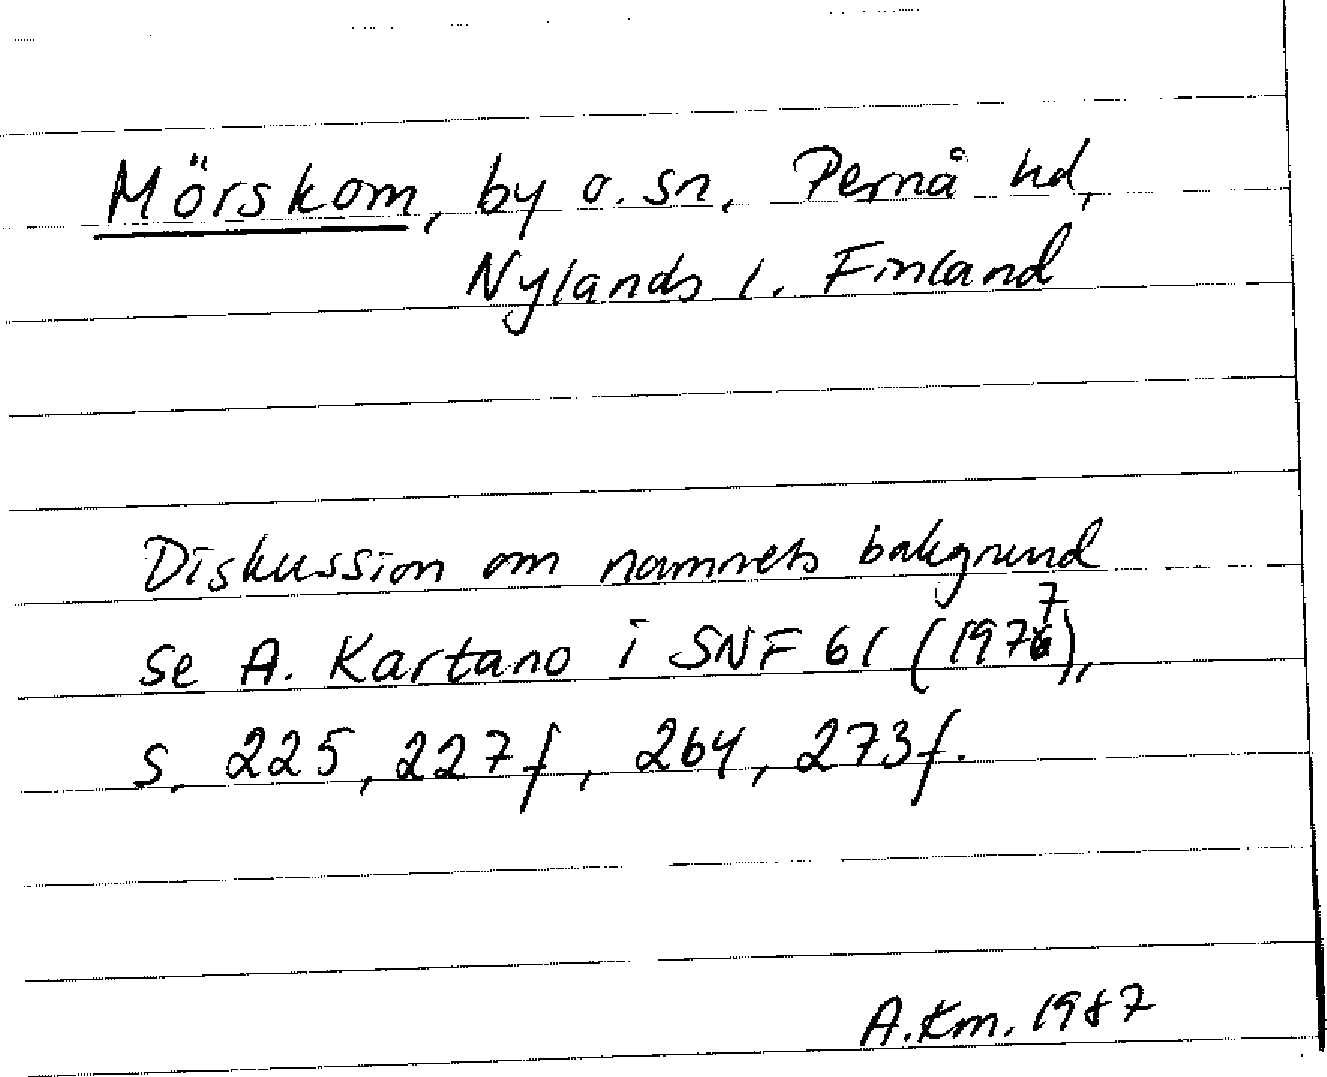 Mörskom, by o. sn, Pernå hd,
Nylands l. Finland
Diskussion om namnets bakgrund
se A. Kartano i SNF 61 (1977),
s. 225, 227f, 264, 273f.
A.Km. 1987